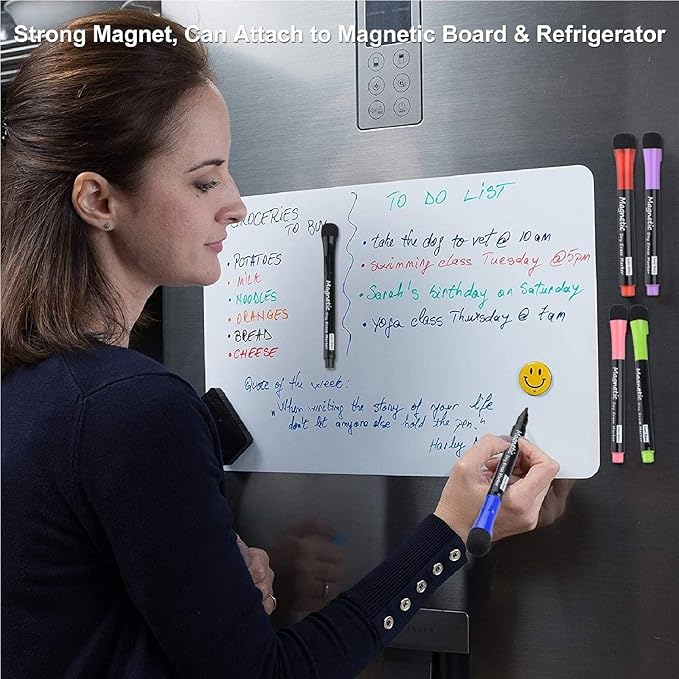 Strong Magnet, Can Attach to Magnetic Board & Refrigerator
GROCERIES
TO BUY
• POTATOES
• MILK
• NOODLES
• ORANGES
• BREAD
• CHEESE
TO DO LIST
• take the dog to vet @ 10 am
• swimming class Tuesday @ 5pm
• Sarah's birthday on Saturday
• yoga class Thursday @ 7am
Quote of the week:
"When writing the story of your life
don't let anyone else hold the pen."
Harley
Magnetic Dry Erase Marker
Magnetic Dry Erase Marker
Magnetic Dry Erase Marker
Magnetic Dry Erase Marker
Magnetic Dry Erase Marker